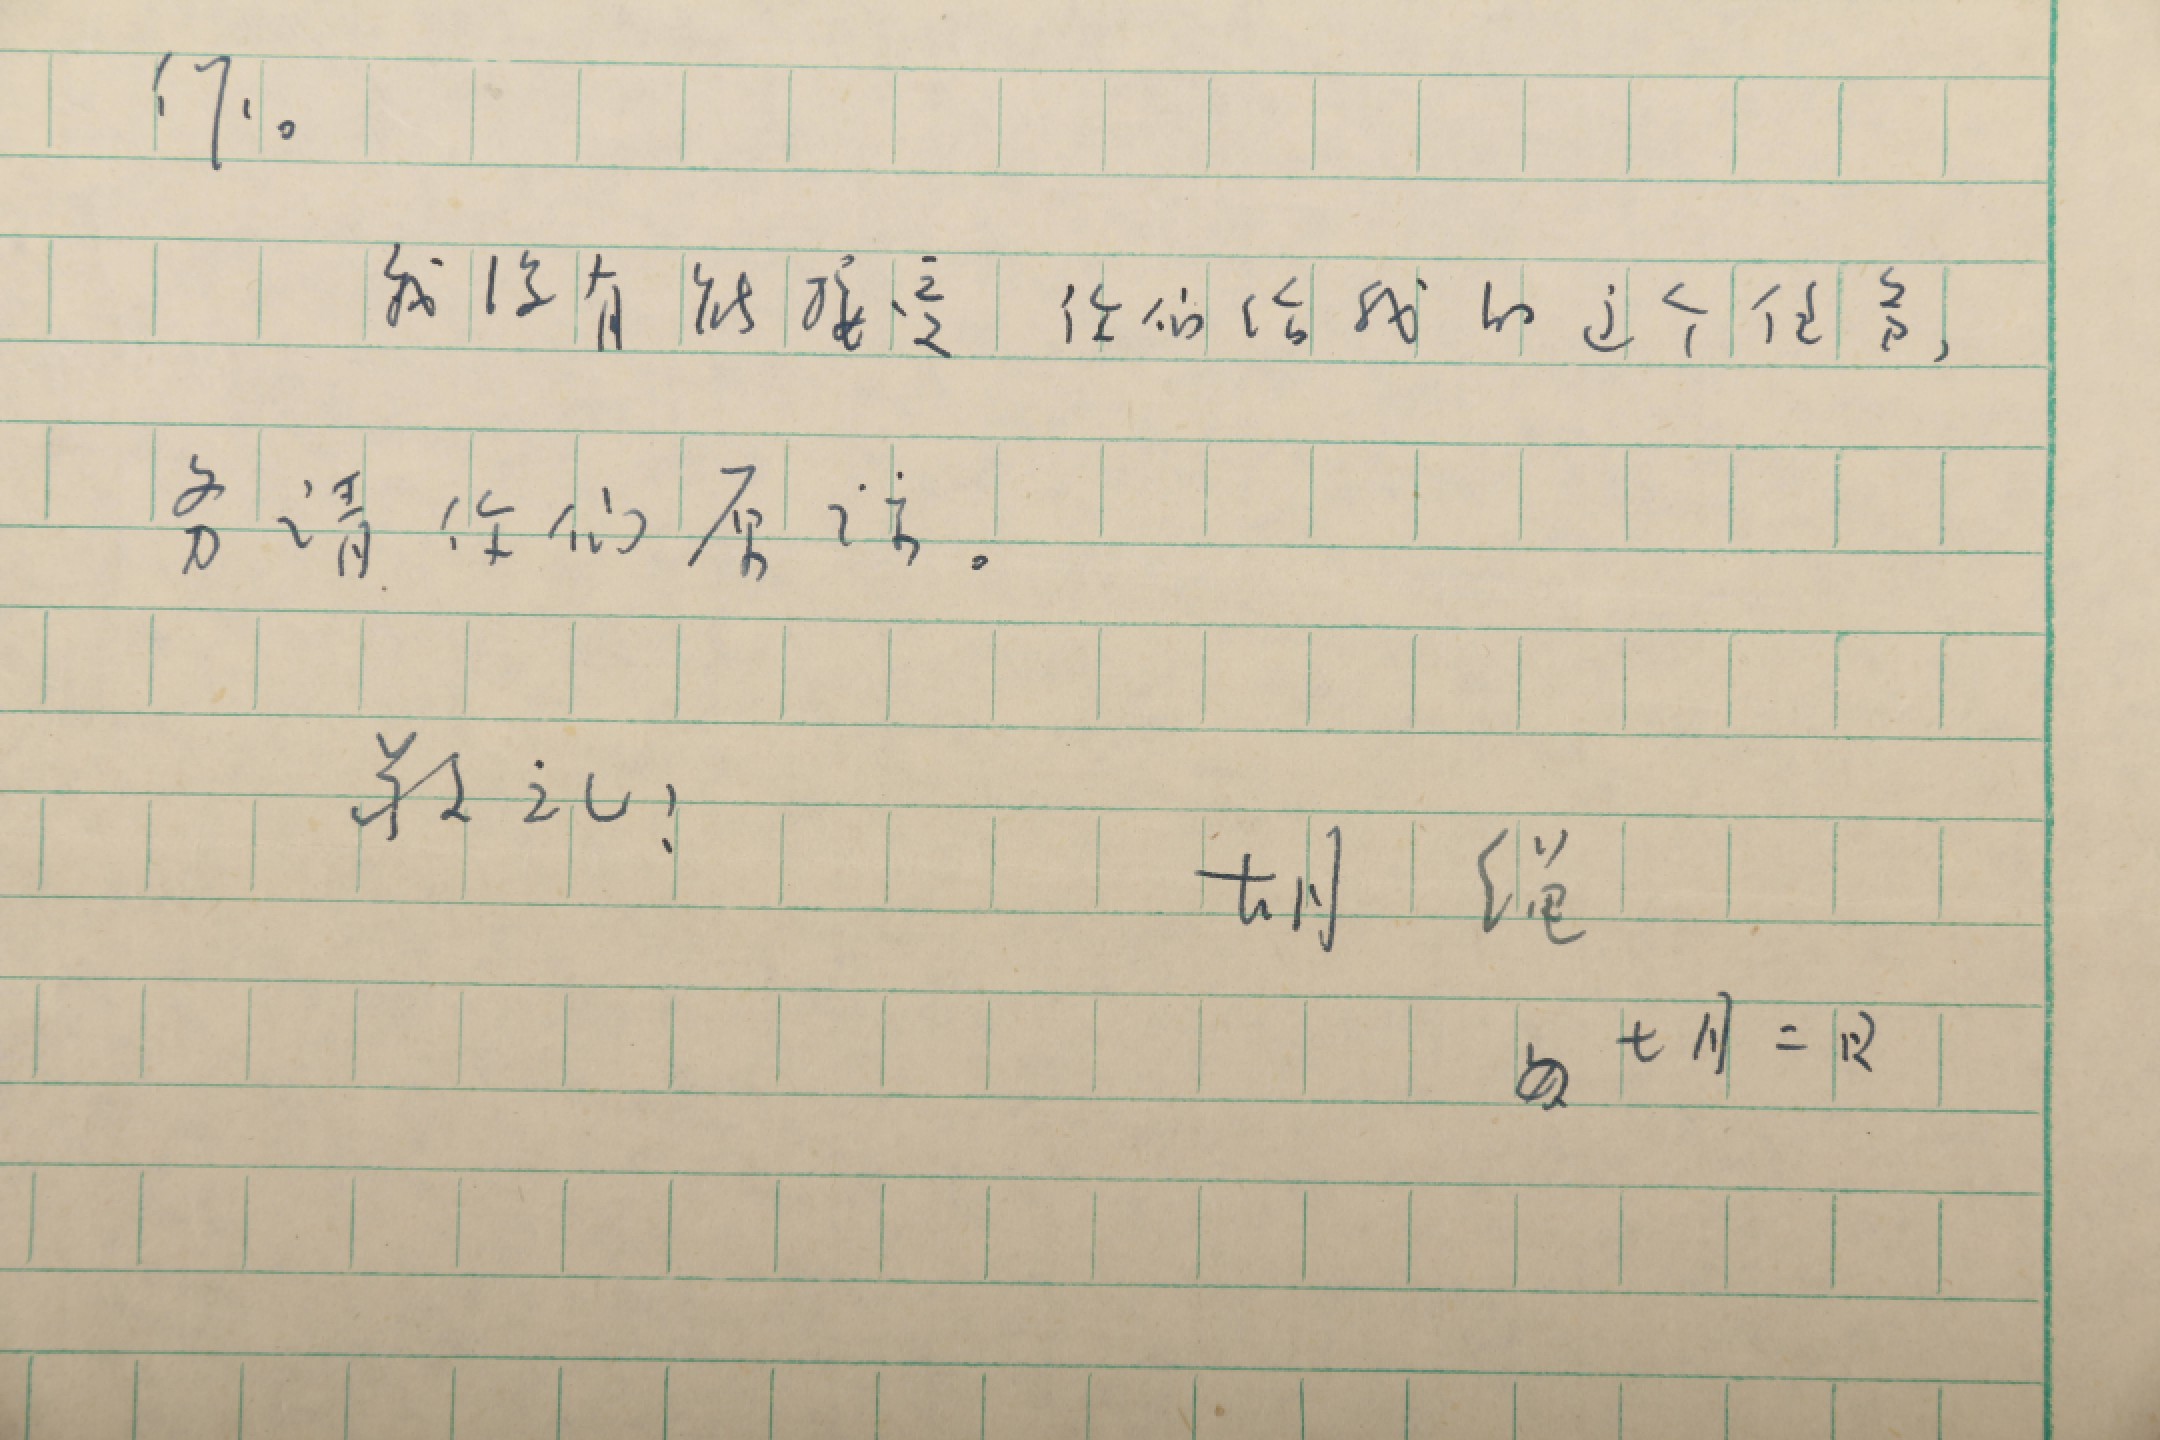 你。
我没有能接受你们给我的这个任务，
务请你们原谅。
敬礼！
胡绳
七月二日